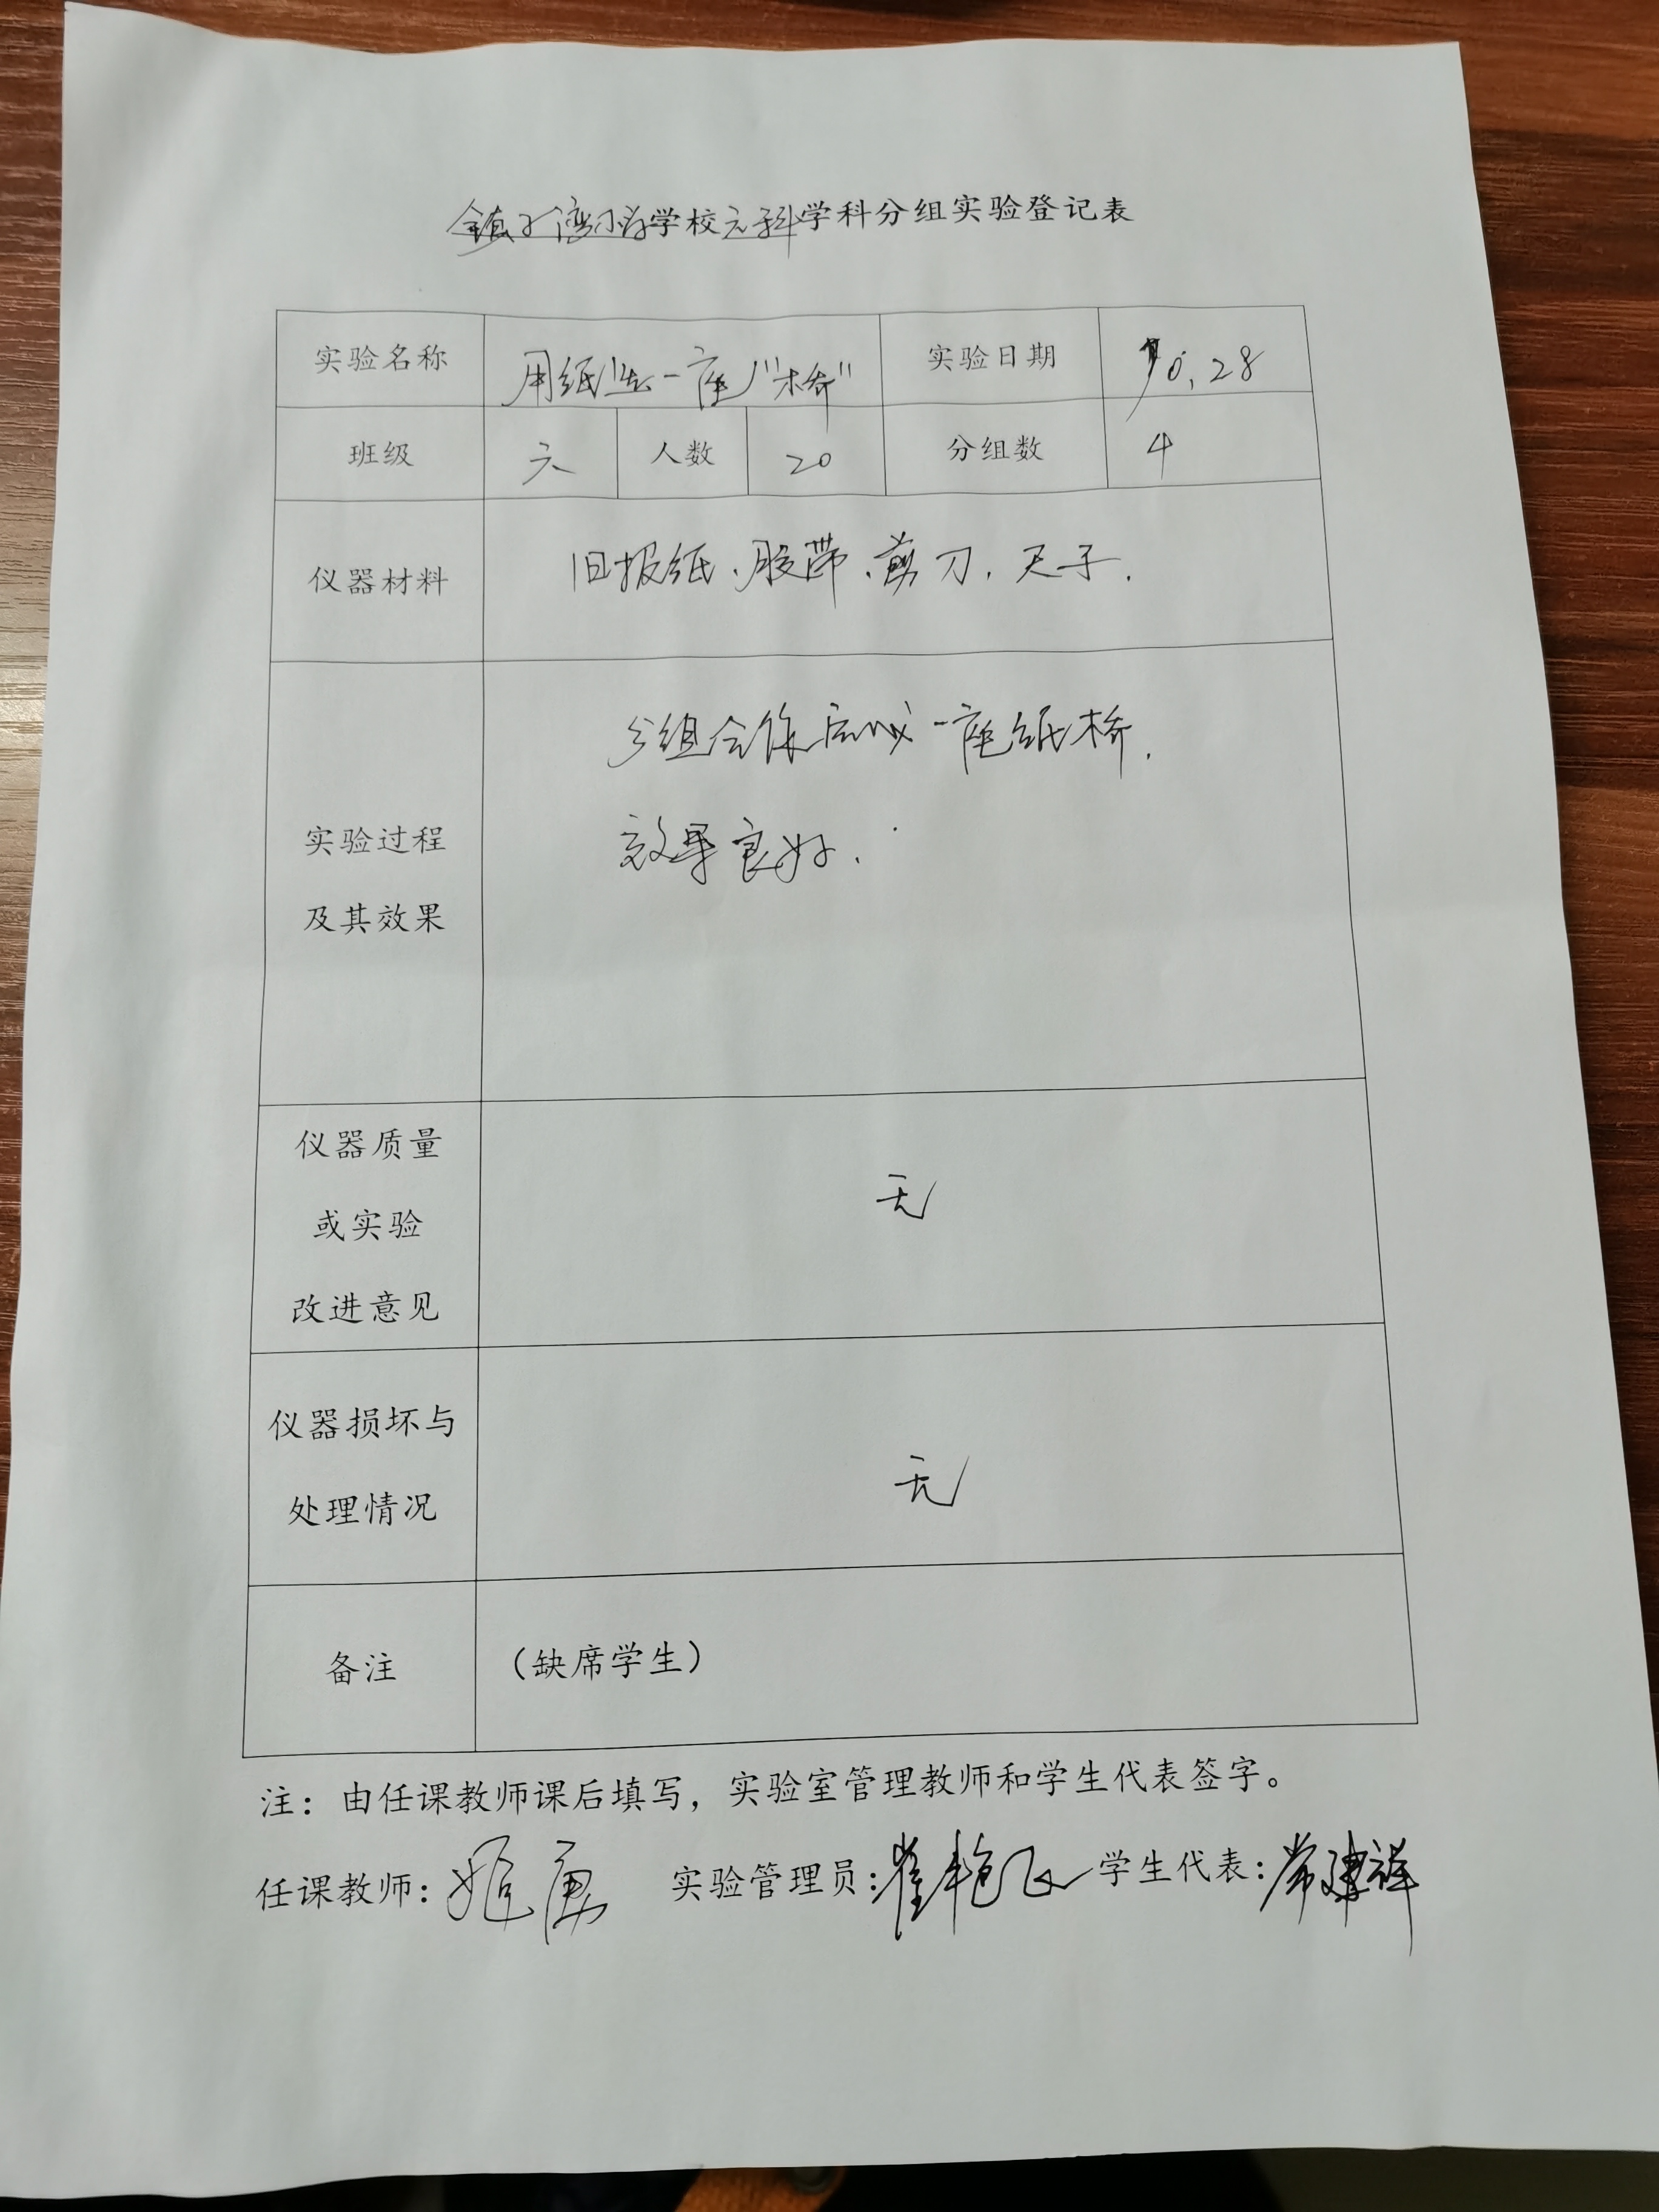 镇子湾小学学校六科学科分组实验登记表
实验名称 用纸造一座"桥" 实验日期 10.28
班级 六 人数 20 分组数 4
仪器材料 旧报纸、胶带、剪刀、尺子.
分组合作完成一座纸桥.
效果良好.
实验过程
及其效果
仪器质量
或实验
改进意见
无
仪器损坏与
处理情况
无
备注 (缺席学生)
注：由任课教师课后填写，实验室管理教师和学生代表签字。
任课教师： 实验管理员：崔艳飞 学生代表：常建祥